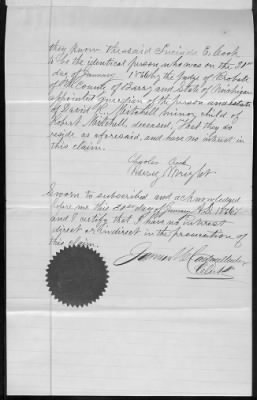 they know the said Lucinda E. Cook
to be the identical person who was on the 31st
day of January by the Judge of Probate
of the County of Barry and State of Michigan
appointed guardian of the person and estate
of David R. Mitchell minor child of
Robert Mitchell deceased, That they so
reside as aforesaid, and have no interest in
this claim.
Charles Cook
Henry Wright
Sworn to subscribed and acknowledged
before me this day of January A.D.
and I certify that I have no interest
direct or indirect in the prosecution of
this claim.
James
Clerk